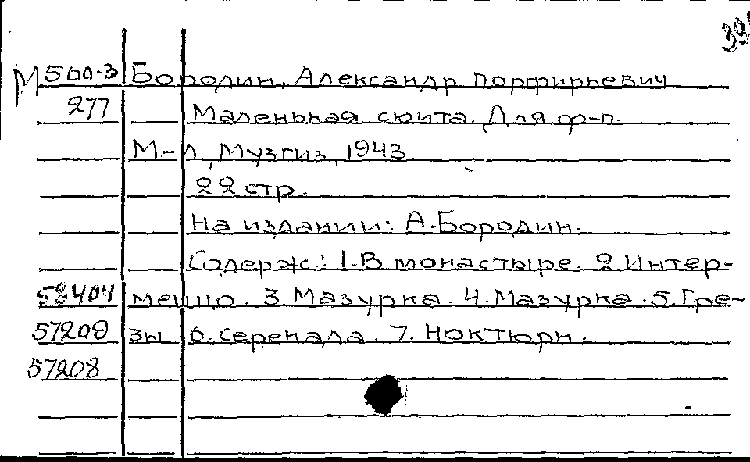 М 500-3 Бородин, Александр Порфирьевич
277 Маленькая сюита. Для ф-п.
М-Л, Музгиз, 1943
22 стр.
На издании: А. Бородин.
Содерж.: 1. В монастыре. 2. Интер-
меццо. 3. Мазурка. 4. Мазурка. 5. Гре-
57209 зы 6. Серенада. 7. Ноктюрн.
57208